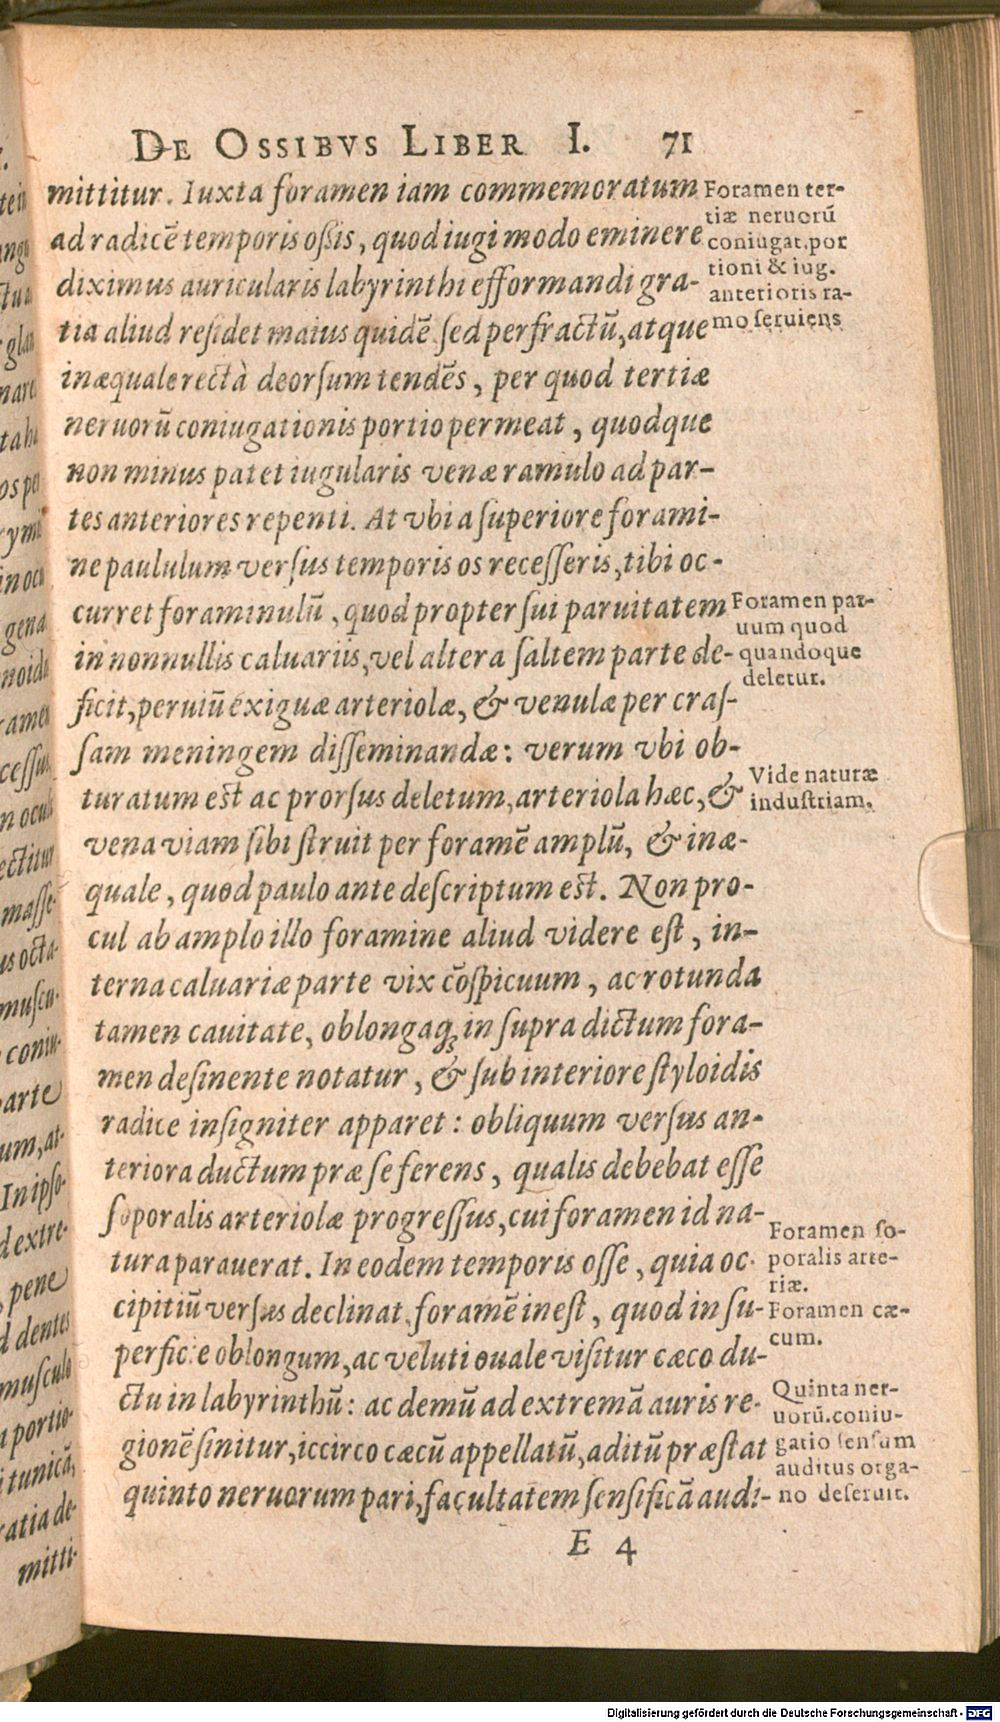 DE OSSIBVS LIBER I. 71
mittitur. Iuxta foramen iam commemoratum
ad radicē temporis oſsis, quod iugi modo eminere
diximus auricularis labyrinthi efformandi gra-
tia aliud reſidet maius quidē ſed perfractū, atque
inæquale rectà deorſum tendēs, per quod tertiæ
neruorū coniugationis portio permeat, quodque
non minus patet iugularis venæ ramulo ad par-
tes anteriores repenti. At vbi a ſuperiore forami-
ne paululum verſus temporis os receſſeris, tibi oc-
curret foraminulū, quod propter ſui paruitatem
in nonnullis caluariis, vel altera ſaltem parte de-
ficit, peruiū exiguæ arteriolæ, & venulæ per craſ-
ſam meningem diſſeminandæ: verum vbi ob-
turatum est ac prorſus deletum, arteriola hæc, &
vena viam ſibi ſtruit per foramē amplū, & inæ-
quale, quod paulo ante deſcriptum est. Non pro-
cul ab amplo illo foramine aliud videre eſt, in-
terna caluariæ parte vix cōſpicuum, ac rotunda
tamen cauitate, oblongaq; in ſupra dictum fora-
men deſinente notatur, & ſub interiore ſtyloidis
radice inſigniter apparet: obliquum verſus an-
teriora ductum præ ſe ferens, qualis debebat eſſe
ſoporalis arteriolæ progreſſus, cui foramen id na-
tura parauerat. In eodem temporis oſſe, quia oc-
cipitiū verſus declinat, foramē ineſt, quod in ſu-
perficie oblongum, ac veluti ouale viſitur cæco du-
ctu in labyrinthū: ac demū ad extremā auris re-
gionē ſinitur, iccirco cæcū appellatū, aditū præstat
quinto neruorum pari, facultatem ſenſificā audi-
E 4
Foramen ter-
tiæ neruorū
coniugat. por
tioni & iug.
anterioris ra-
mo ſeruiens
Foramen par-
uum quod
quandoque
deletur.
Vide naturæ
induſtriam.
Foramen ſo-
poralis arte-
riæ.
Foramen cæ-
cum.
Quinta ner-
uorū. coniu-
gatio ſenſum
auditus orga-
no deſeruit.
tein
glan
nare
tabi
os per
in ocu
gena
noida
ramen
ceſſus
n oculi
ectitur
maſſe-
us octa-
muſcu-
coniu-
parte
um, at-
In ipſo-
d extre-
, pene
d dentes
muſculo
portio-
tunicā,
ratia de-
mitti-
Digitalisierung gefördert durch die Deutsche Forschungsgemeinschaft - DFG